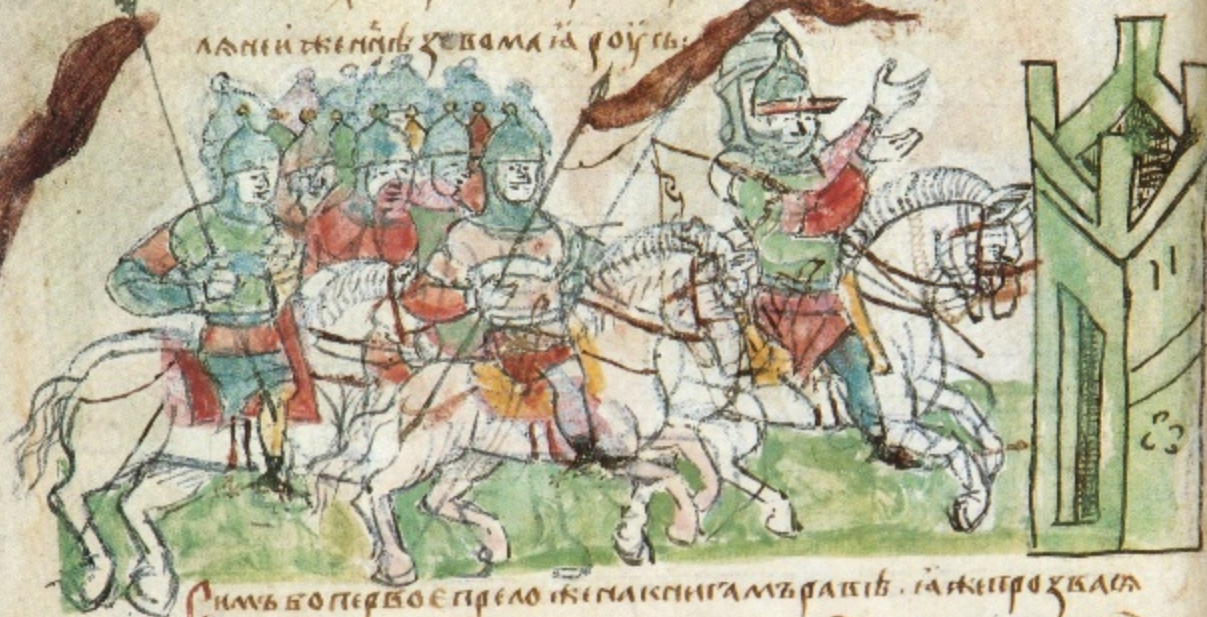 лѧне и҆ же нн҃ѣ зовомаꙗ роусь.
Симъ бо первоє преложена книга мѡравѣ. ꙗ҆же прозвасѧ